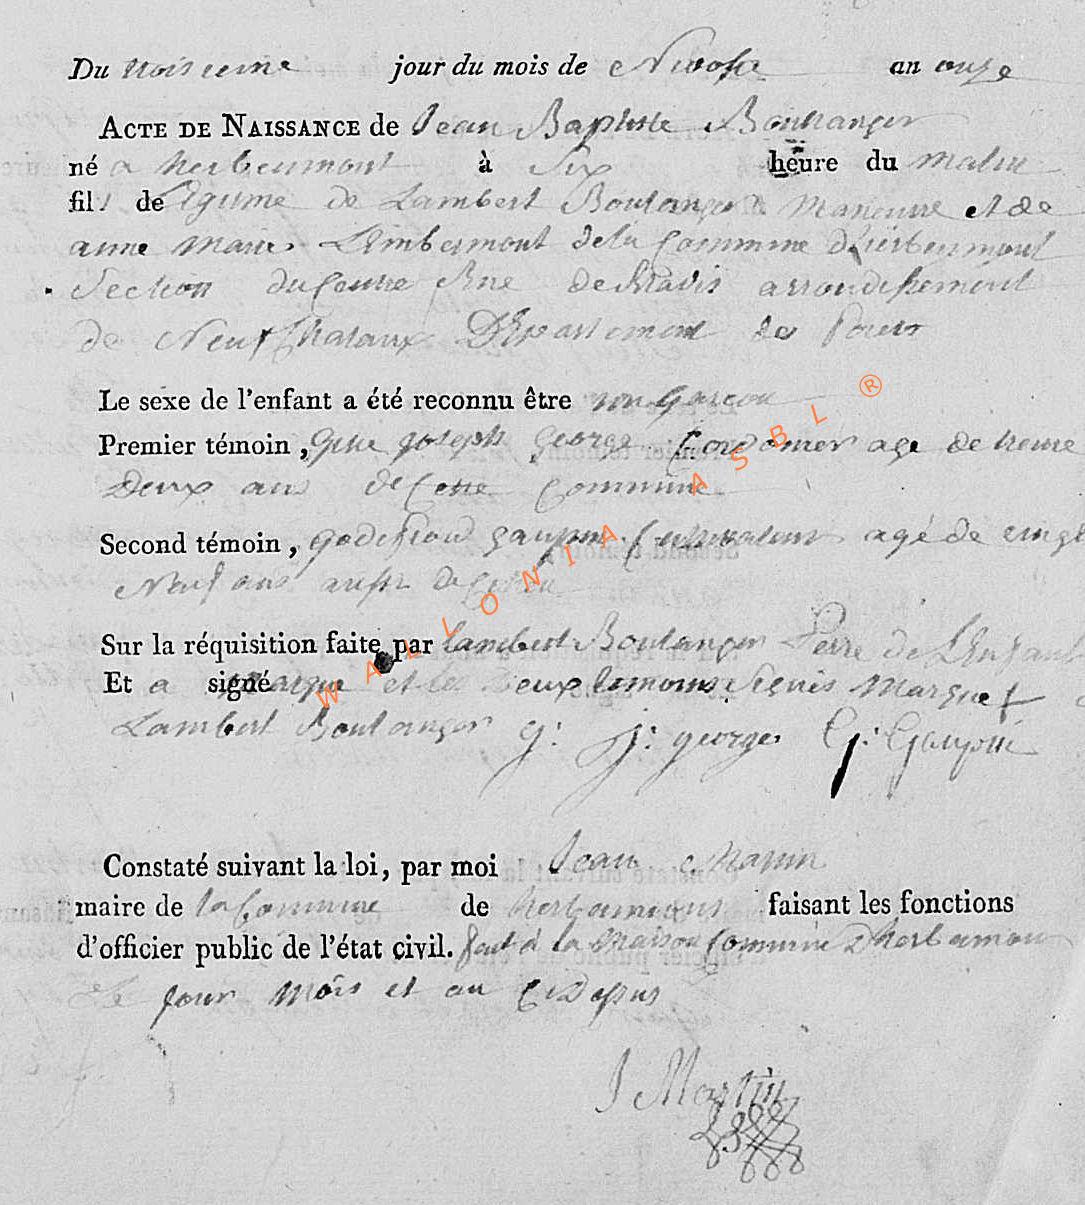 Du troisieme jour du mois de Nivose an onze
ACTE DE NAISSANCE de Jean Baptiste Boulanger
né a herbeumont à Six heure du matin
fils de legitime de Lambert Boulanger Maneuvre et de
anne marie Limbermont dela Commune d'herbeumont
Section du Centre Rue arrondissement
de Neufchataux Département de
Le sexe de l'enfant a été reconnu être un Garcon
Premier témoin, joseph george Cordonier age de trente
Deux ans de Cette Commune
Second témoin, godefroid gaupin Cultivateur agé de vingt
Neuf ans aussi de
Sur la réquisition faite par lambert Boulanger Perre de L'Enfant
Et a signé marque et les Deux temoins signés Marque +
Lambert Boulanger g: j: george G: Gaupin
Constaté suivant la loi, par moi Jean Martin
maire de la Commune de herbeumont faisant les fonctions
d'officier public de l'état civil. fait à la maison Commune D'herbeumon
Le jour mois et an Cidessus
J Martin
WALLONIA ASBL ®